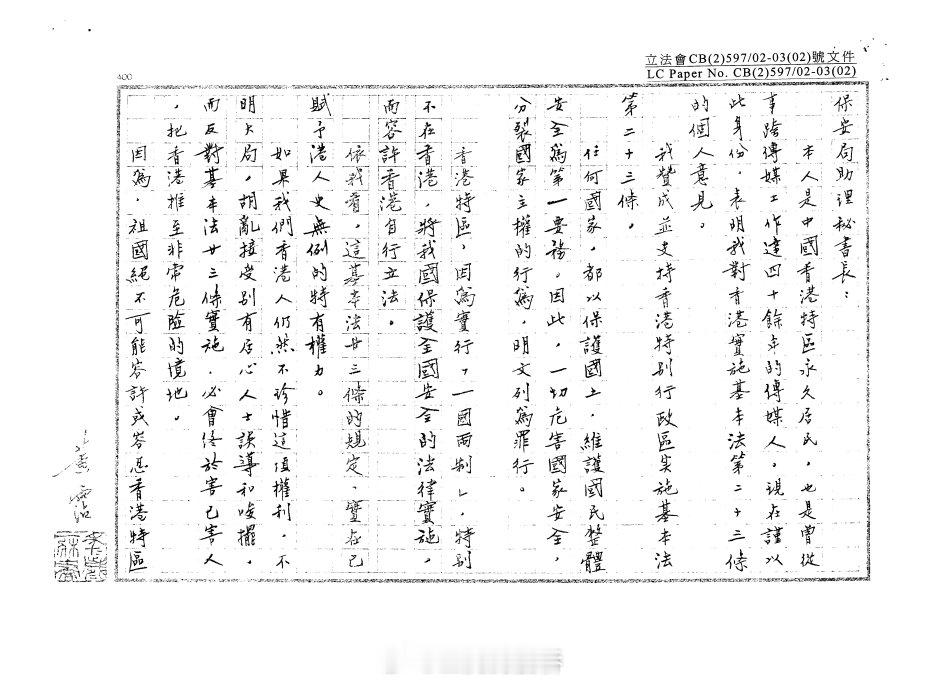 立法會CB(2)597/02-03(02)號文件
LC Paper No. CB(2)597/02-03(02)
400
保安局助理秘書長：
本人是中國香港特區永久居民，也是曾從
事跨傳媒工作達四十餘年的傳媒人。現在謹以
此身份，表明我對香港實施基本法第二十三條
的個人意見。
我贊成並支持香港特別行政區實施基本法
第二十三條。
任何國家，都以保護國土，維護國民整體
安全為第一要務。因此，一切危害國家安全，
分裂國家主權的行為，明文列為罪行。
香港特區，因為實行「一國兩制」，特別
不在香港，將我國保護全國安全的法律實施，
而容許香港自行立法。
依我看，這基本法廿三條的規定，實在已
賦予港人史無例的特有權力。
如果我們香港人仍然不珍惜這項權利，不
明大局，胡亂接受別有居心人士誤導和唆擺，
而反對基本法廿三條實施，必會終於害己害人
，把香港推至非常危險的境地。
因為，祖國絕不可能容許或容忍香港特區
黃霑